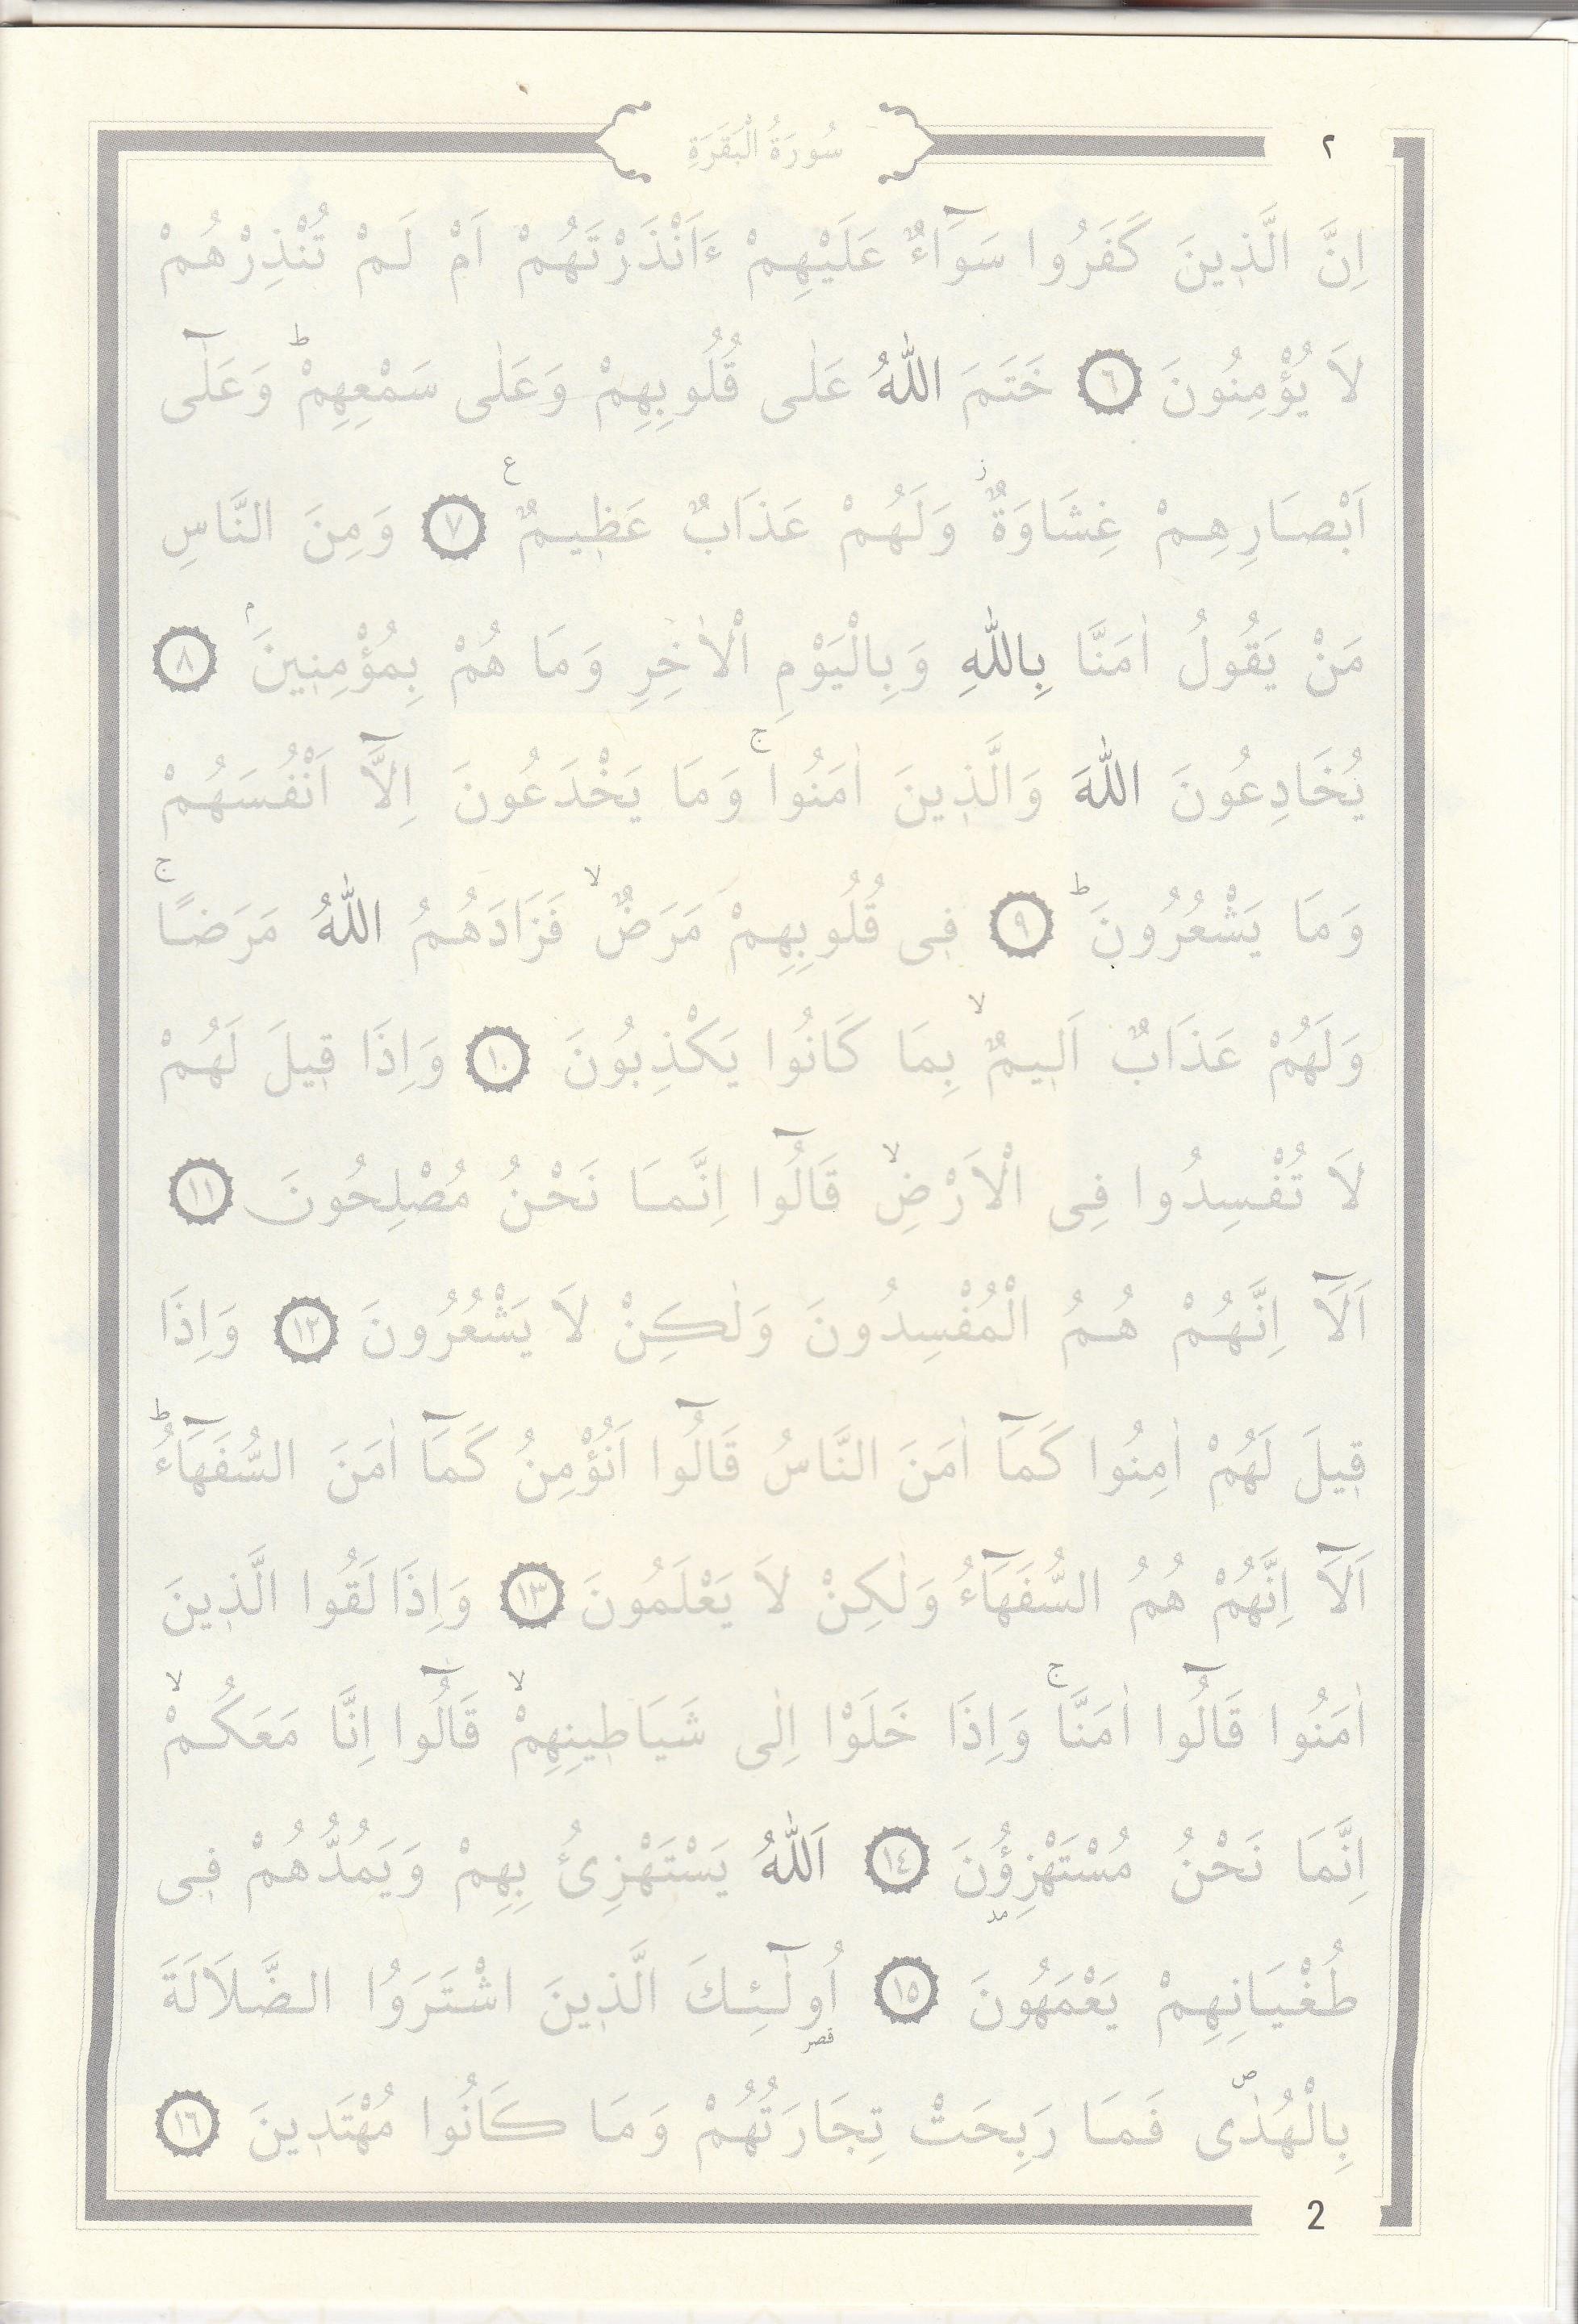 ٢
سُورَةُ الْبَقَرَةِ
اِنَّ الَّذ۪ينَ كَفَرُوا سَوَٓاءٌ عَلَيْهِمْ ءَاَنْذَرْتَهُمْ اَمْ لَمْ تُنْذِرْهُمْ
لَا يُؤْمِنُونَ ﴿٦﴾ خَتَمَ اللّٰهُ عَلٰى قُلُوبِهِمْ وَعَلٰى سَمْعِهِمْؕ وَعَلٰٓى
اَبْصَارِهِمْ غِشَاوَةٌؗ وَلَهُمْ عَذَابٌ عَظ۪يمٌ ع ﴿٧﴾ وَمِنَ النَّاسِ
مَنْ يَقُولُ اٰمَنَّا بِاللّٰهِ وَبِالْيَوْمِ الْاٰخِرِ وَمَا هُمْ بِمُؤْمِن۪ينَۢ ﴿٨﴾
يُخَادِعُونَ اللّٰهَ وَالَّذ۪ينَ اٰمَنُواۚ وَمَا يَخْدَعُونَ اِلَّٓا اَنْفُسَهُمْ
وَمَا يَشْعُرُونَؕ ﴿٩﴾ ف۪ى قُلُوبِهِمْ مَرَضٌۙ فَزَادَهُمُ اللّٰهُ مَرَضًاۚ
وَلَهُمْ عَذَابٌ اَل۪يمٌۙ بِمَا كَانُوا يَكْذِبُونَ ﴿١٠﴾ وَاِذَا ق۪يلَ لَهُمْ
لَا تُفْسِدُوا فِى الْاَرْضِۙ قَالُٓوا اِنَّمَا نَحْنُ مُصْلِحُونَ ﴿١١﴾
اَلَٓا اِنَّهُمْ هُمُ الْمُفْسِدُونَ وَلٰكِنْ لَا يَشْعُرُونَ ﴿١٢﴾ وَاِذَا
ق۪يلَ لَهُمْ اٰمِنُوا كَمَٓا اٰمَنَ النَّاسُ قَالُٓوا اَنُؤْمِنُ كَمَٓا اٰمَنَ السُّفَهَٓاءُؕ
اَلَٓا اِنَّهُمْ هُمُ السُّفَهَٓاءُ وَلٰكِنْ لَا يَعْلَمُونَ ﴿١٣﴾ وَاِذَا لَقُوا الَّذ۪ينَ
اٰمَنُوا قَالُٓوا اٰمَنَّاۚ وَاِذَا خَلَوْا اِلٰى شَيَاط۪ينِهِمْۙ قَالُٓوا اِنَّا مَعَكُمْۙ
اِنَّمَا نَحْنُ مُسْتَهْزِؤُ۫نَ مد ﴿١٤﴾ اَللّٰهُ يَسْتَهْزِئُ بِهِمْ وَيَمُدُّهُمْ ف۪ى
طُغْيَانِهِمْ يَعْمَهُونَ ﴿١٥﴾ اُولٰٓئِكَ قصر الَّذ۪ينَ اشْتَرَوُا الضَّلَالَةَ
بِالْهُدٰىۖ فَمَا رَبِحَتْ تِجَارَتُهُمْ وَمَا كَانُوا مُهْتَد۪ينَ ﴿١٦﴾
2